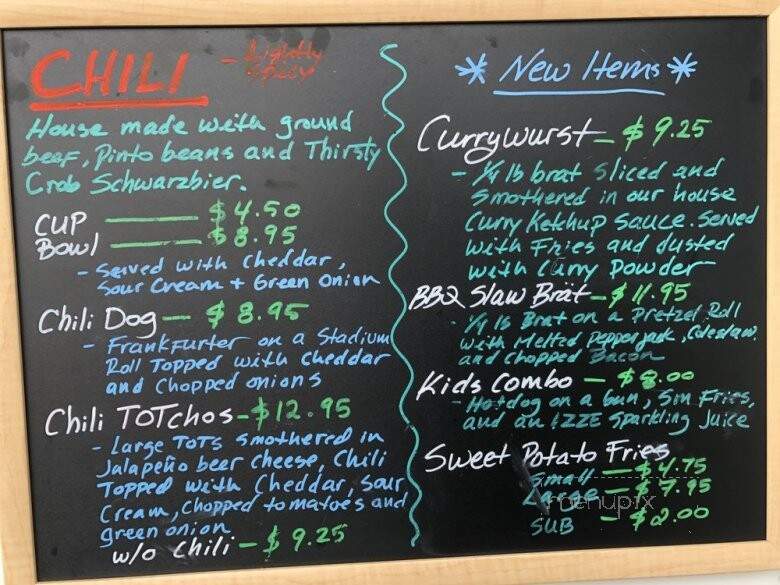 CHILI - Lightly Spicy
House made with ground
beef, Pinto beans and Thirsty
Crab Schwarzbier.
CUP — $4.50
Bowl — $8.95
- served with cheddar,
sour cream + Green Onion
Chili Dog — $8.95
- Frankfurter on a Stadium
Roll Topped with cheddar
and chopped onions
Chili TOTchos - $12.95
- Large TOTs smothered in
Jalapeño beer cheese, Chili
Topped with Cheddar, sour
cream, chopped tomatoes and
green onion
w/o chili - $9.25
* New Items *
Currywurst - $9.25
- 1/4 lb brat sliced and
smothered in our house
Curry Ketchup sauce. Served
with Fries and dusted
with Curry Powder
BBQ Slaw Brat - $11.95
- 1/4 lb Brat on a Pretzel Roll
with Melted Pepperjack, Coleslaw
and chopped Bacon
Kids Combo — $8.00
- Hotdog on a bun, Sm Fries,
and an IZZE Sparkling Juice
Sweet Potato Fries
Small — $4.75
Large — $7.95
SUB — $2.00
menupix